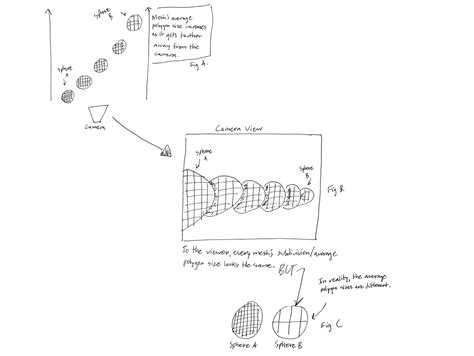 Sphere
B
Mesh's average
polygon size increases
as it gets further
away from the
camera.
Fig A.
Sphere
A
Camera
Camera View
Sphere
A
Sphere
B
Fig B.
To the viewer, every mesh's subdivision/average
polygon size looks the same.
BUT
In reality, the average
polygon sizes are different.
Fig C
Sphere A
Sphere B